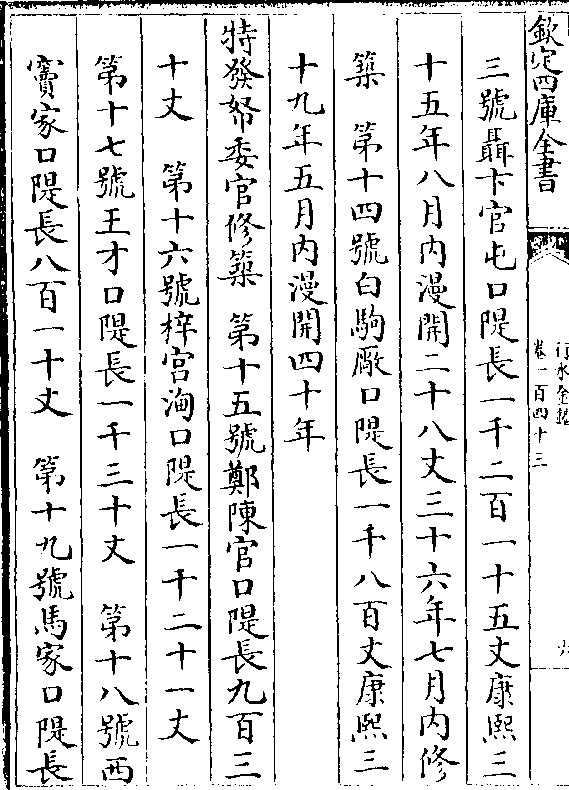 欽定四庫全書
行水金鑑
卷一百四十三
三號聶卞官屯口隄長一千二百一十五丈康熙三
十五年八月內漫開二十八丈三十六年七月內修
築　第十四號白駒厰口隄長一千八百丈康熙三
十九年五月內漫開四十年
特發帑委官修築　第十五號鄭陳官口隄長九百三
十丈　第十六號梓宫淘口隄長一千二十一丈
第十七號王才口隄長一千三十丈　第十八號西
竇家口隄長八百一十丈　第十九號馬家口隄長